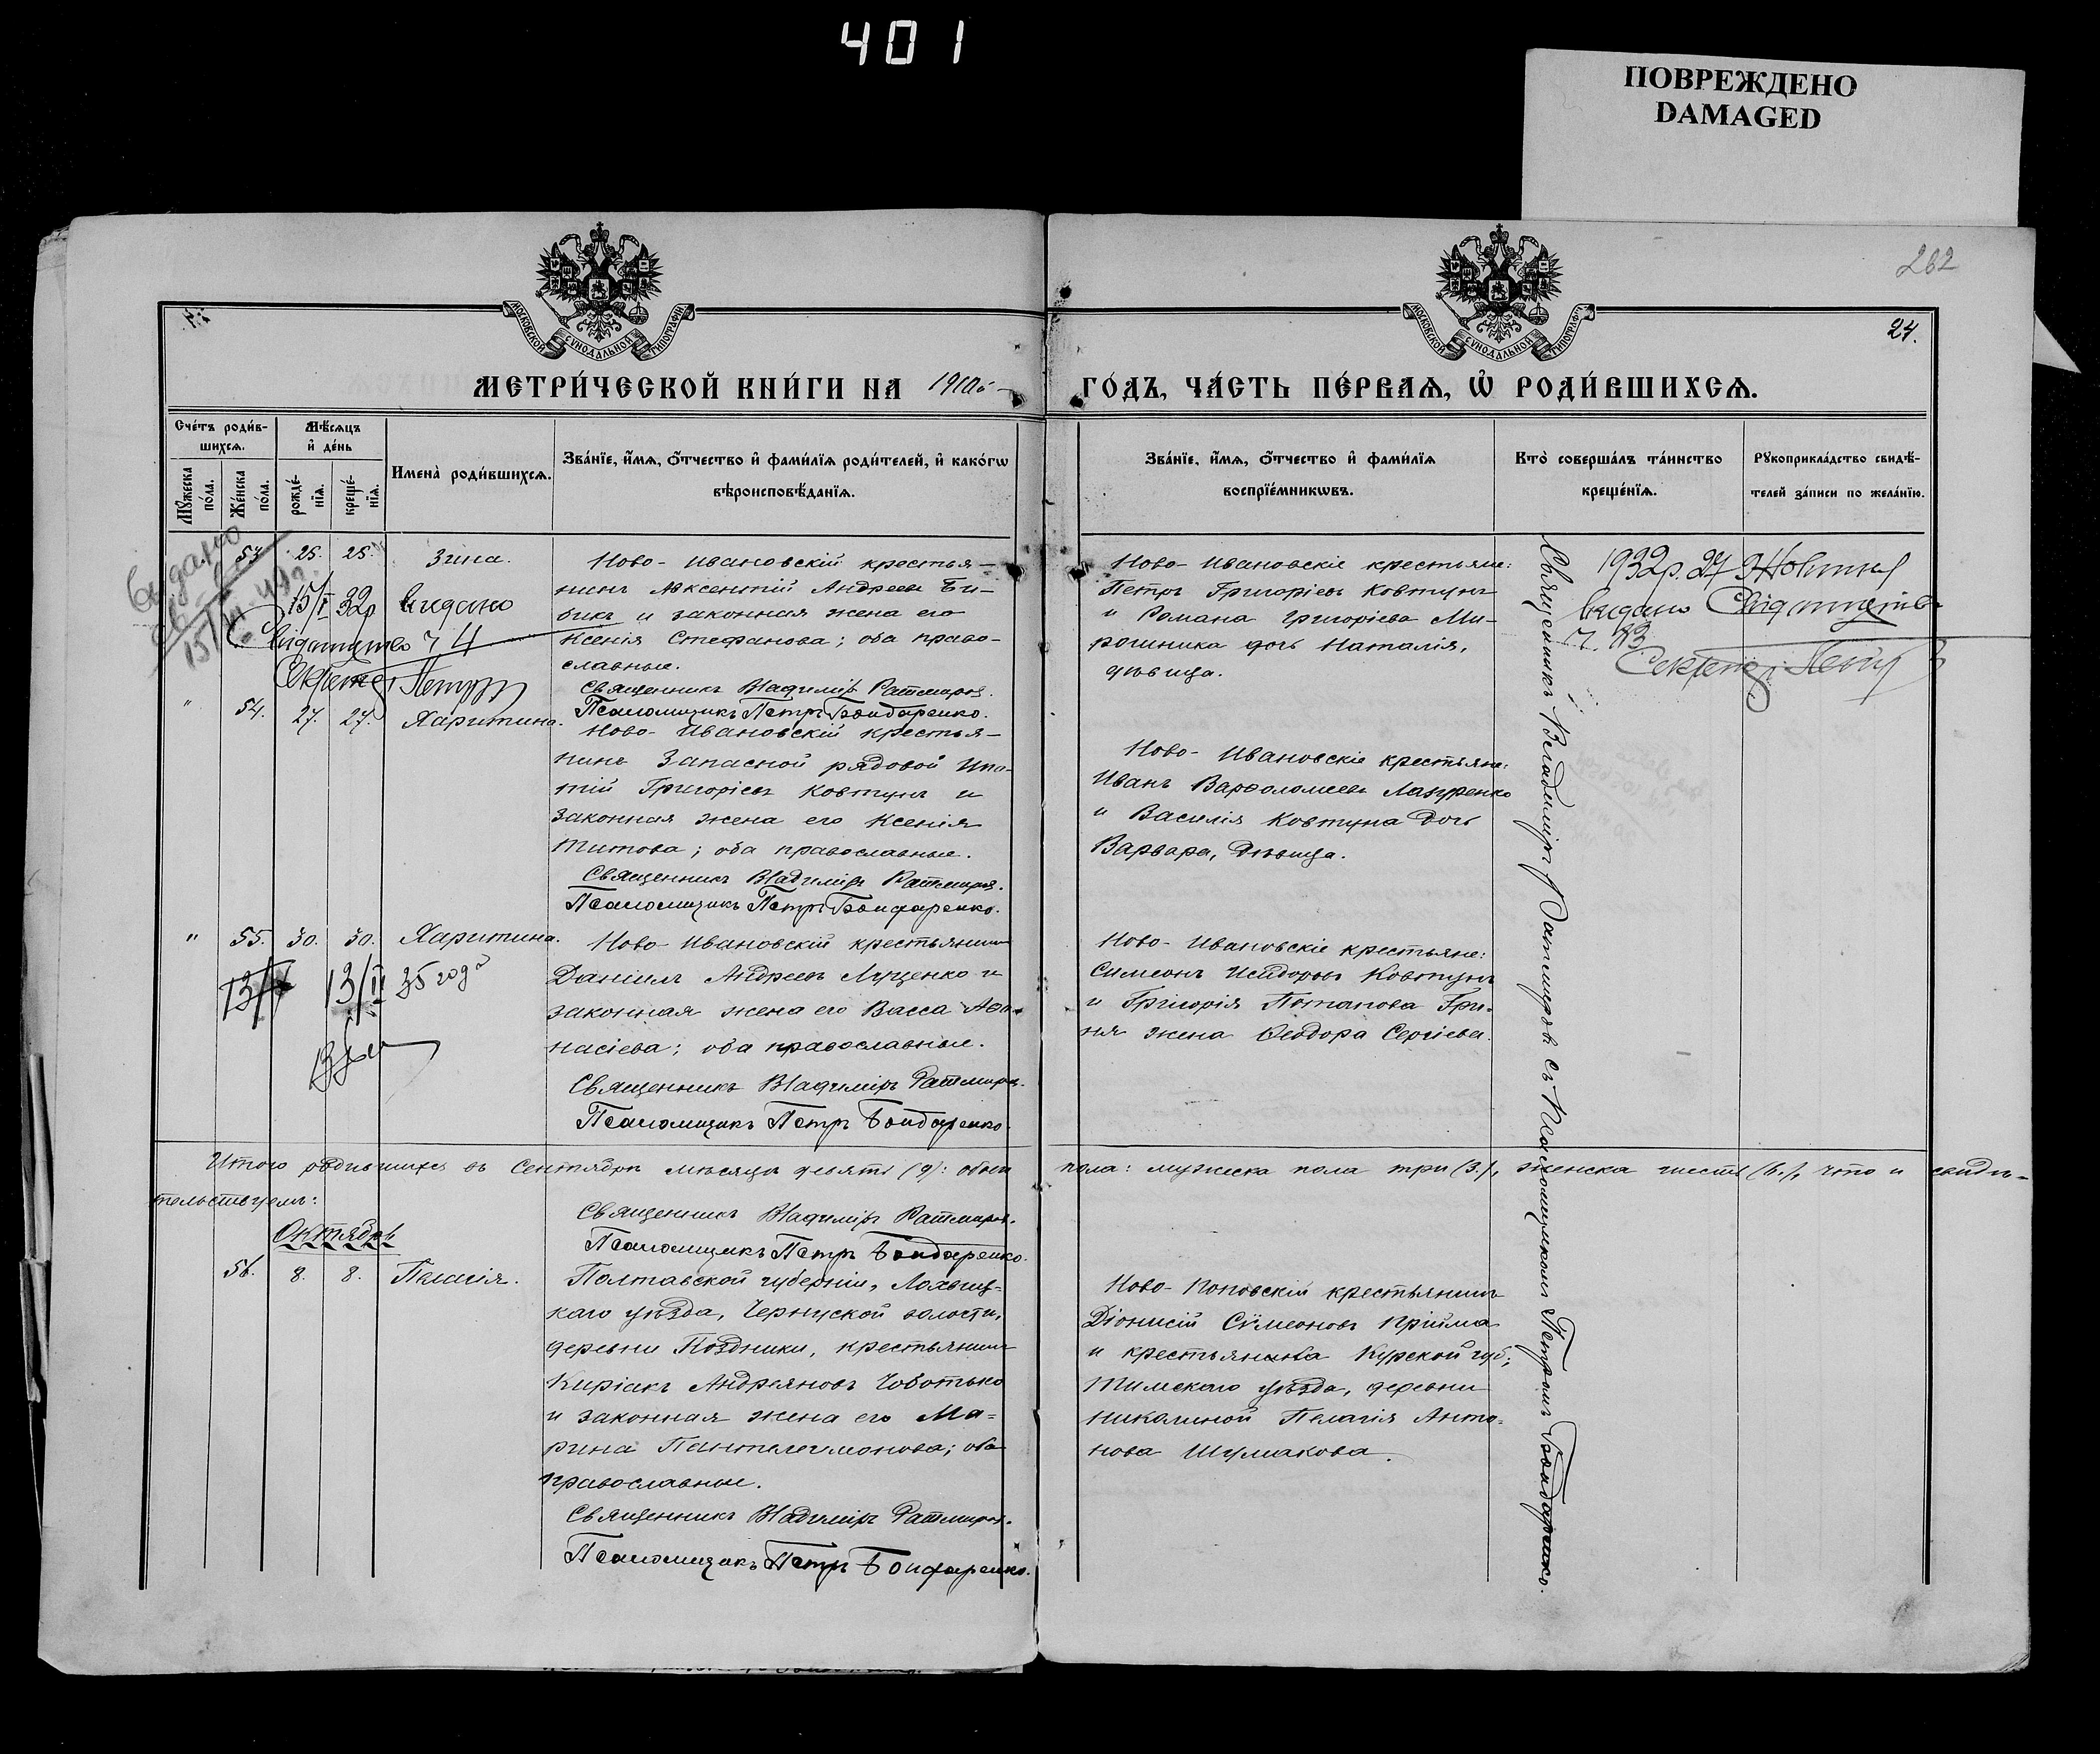 401
ПОВРЕЖДЕНО
DAMAGED
262
24.
МОСКОВСКОЙ СУНОДАЛЬНОЙ ТИПОГРАФІИ
МОСКОВСКОЙ СУНОДАЛЬНОЙ ТИПОГРАФІИ
МЕТРИ́ЧЕСКОЙ КНИ́ГИ НА 1910й ГО́ДЪ, ЧА́СТЬ ПЕ́РВАѦ, Ѡ҆ РОДИ́ВШИХСѦ.
Сче́тъ роди́в-
шихсѧ.
Мѣ́сѧцъ
и҆ де́нь
Мꙋ́жеска по́ла.
Же́нска по́ла.
рожде́-
нїѧ.
креще́-
нїѧ.
Имена̀ роди́вшихсѧ.
Зва́нїе, и҆́мѧ, ѻ҆́тчество и҆ фами́лїѧ роди́телей, и҆ како́гѡ
вѣроисповѣ́данїѧ.
Зва́нїе, и҆́мѧ, ѻ҆́тчество и҆ фами́лїѧ
воспрїе́мникѡвъ.
Кто̀ соверша́лъ та́инство
креще́нїѧ.
Рꙋкоприкла́дство свидѣ́-
телей за́писи по жела́нїю.
53 25. 25. Зина.
Ново-Ивановскій крестья-
нинъ Авксентій Андреевъ Би-
бикъ и законная жена его
Ксенія Стефанова; оба право-
славные.
Священникъ Владиміръ Ратмировъ.
Псаломщикъ Петръ Бондаренко.
Ново-Ивановскіе крестьяне:
Петръ Григоріевъ Ковтунъ
и Романа Григоріева Ми-
рошника дочь Наталія,
дѣвица.
видано
15/I 32р видано
Свидоцтво ч 4
Секретар
1932р. 27 Жовтня
видано Свидоцтво
ч. 83
Секретар
" 54. 27. 27. Харитина.
Ново-Ивановскій крестья-
нинъ Запасной рядовой Ипа-
тій Григоріевъ Ковтунъ и
законная жена его Ксенія
Титова; оба православные.
Священникъ Владиміръ Ратмировъ.
Псаломщикъ Петръ Бондаренко.
Ново-Ивановскіе крестьяне:
Иванъ Варѳоломеевъ Лазуренко
и Василія Ковтуна дочь
Варвара, дѣвица.
" 55. 30. 30. Харитина.
Ново-Ивановскій крестьянинъ
Даніилъ Андреевъ Луценко и
законная жена его Васса Аѳа-
насіева; оба православные.
Священникъ Владиміръ Ратмировъ.
Псаломщикъ Петръ Бондаренко.
Ново-Ивановскіе крестьяне:
Симеонъ Исидоровъ Ковтунъ
и Григорія Потапова Гри-
ня жена Ѳеодора Сергіева.
13/II 35 года
Итого родившихся въ Сентябрѣ мѣсяцѣ девять (9): обоего пола: мужеска пола три (3.), женска шесть (6.), что и свидѣ-
тельствуемъ:
Священникъ Владиміръ Ратмировъ.
Псаломщикъ Петръ Бондаренко.
Октябрь
56. 8. 8. Пелагія.
Полтавской губерніи, Лохвиц-
каго уѣзда, Чернуской волости,
деревни Поздники, крестьянинъ
Киріакъ Андреяновъ Чоботько
и законная жена его Ма-
рина Пантелеимонова; оба
православные.
Священникъ Владиміръ Ратмировъ.
Псаломщикъ Петръ Бондаренко.
Ново-Поповскій крестьянинъ
Діонисій Сѵмеоновъ Прійма
и крестьянка Курской губ.;
Тимскаго уѣзда, деревни
Николиной Пелагія Анто-
нова Шумакова.
Священникъ Владиміръ Ратмировъ съ Псаломщикомъ Петромъ Бондаренко.